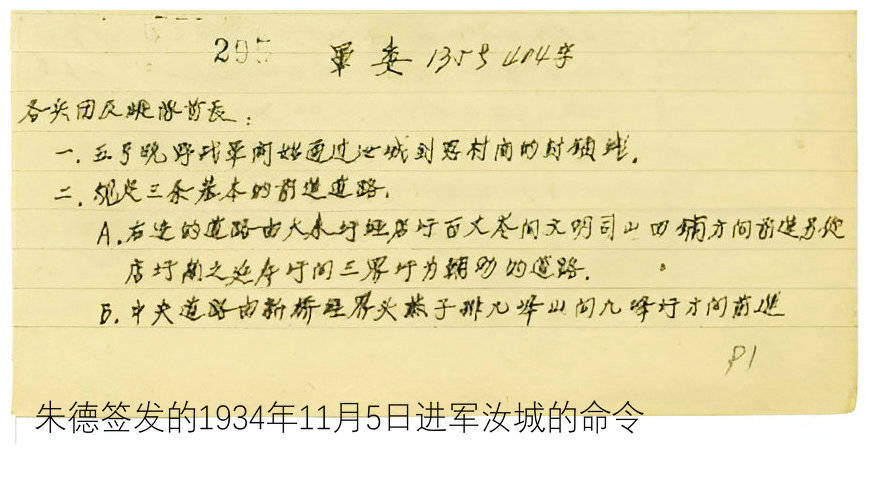 295
軍委 135号 404字
各兵团及纵队首长:
一. 五号晚野战军开始通过汝城到思村间的封锁线.
二. 规定三条基本的前进道路.
A. 右边的道路由大来圩经店圩百丈岭向文明司山田铺方向前进另从
店圩南之延寿圩向三界圩为辅助的道路.
B. 中央道路由新桥经界头燕子排九峰山向九峰圩方向前進
P1
朱德签发的1934年11月5日进军汝城的命令